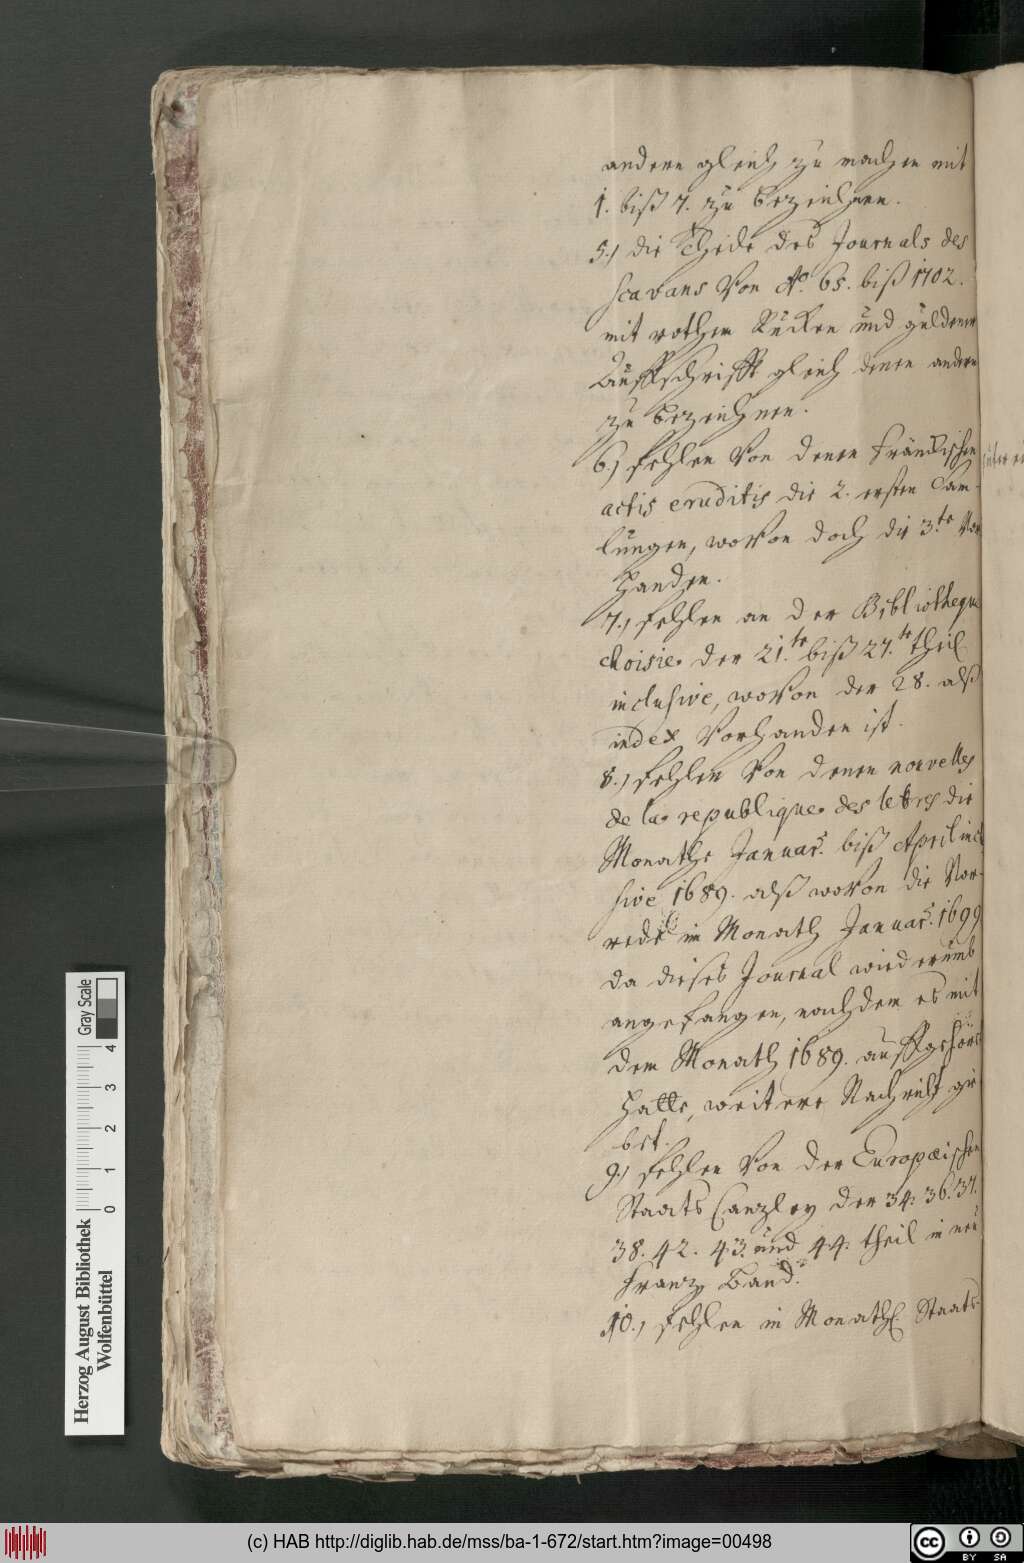 andern gleich zu machen mit
1. biß 7. zu bezeichnen.
5.) die Theile des Journals des
scavans von Ao. 65. biß 1702.
mit rothem Rücken und güldener
Auffschrifft gleich denen andern
zu bezeichnen.
6.) fehlen von denen Fränckischen
actis eruditis die 2. ersten Sam-
lüngen, wovon doch die 3.te vor
handen.
7.) fehlen an der Bibliotheque
choisie. der 21.te biß 27.te theil
inclusive, wovon der 28. alß
index vorhanden ist.
8.) fehlen von denen nouvelles
de la republique des letres die
Monathe Januar. biß April inclu
sive 1689. alß wovon die Vor-
rede im Monath Januar. 1699
da dieses Journal wiederumb
angefangen, nachdem es mit
dem Monath 1689. auffgehört
hatte, weitere Nachricht gie
bet.
9.) fehlen von der Europæischen
Staats Canzley der 34. 36. 37.
38. 42. 43. und 44. theil in neu
Franz Band.
10.) fehlen in Monathl. Staats-
Gray Scale
0 1 2 3 4
Herzog August Bibliothek
Wolfenbüttel
(c) HAB http://diglib.hab.de/mss/ba-1-672/start.htm?image=00498
cc BY SA